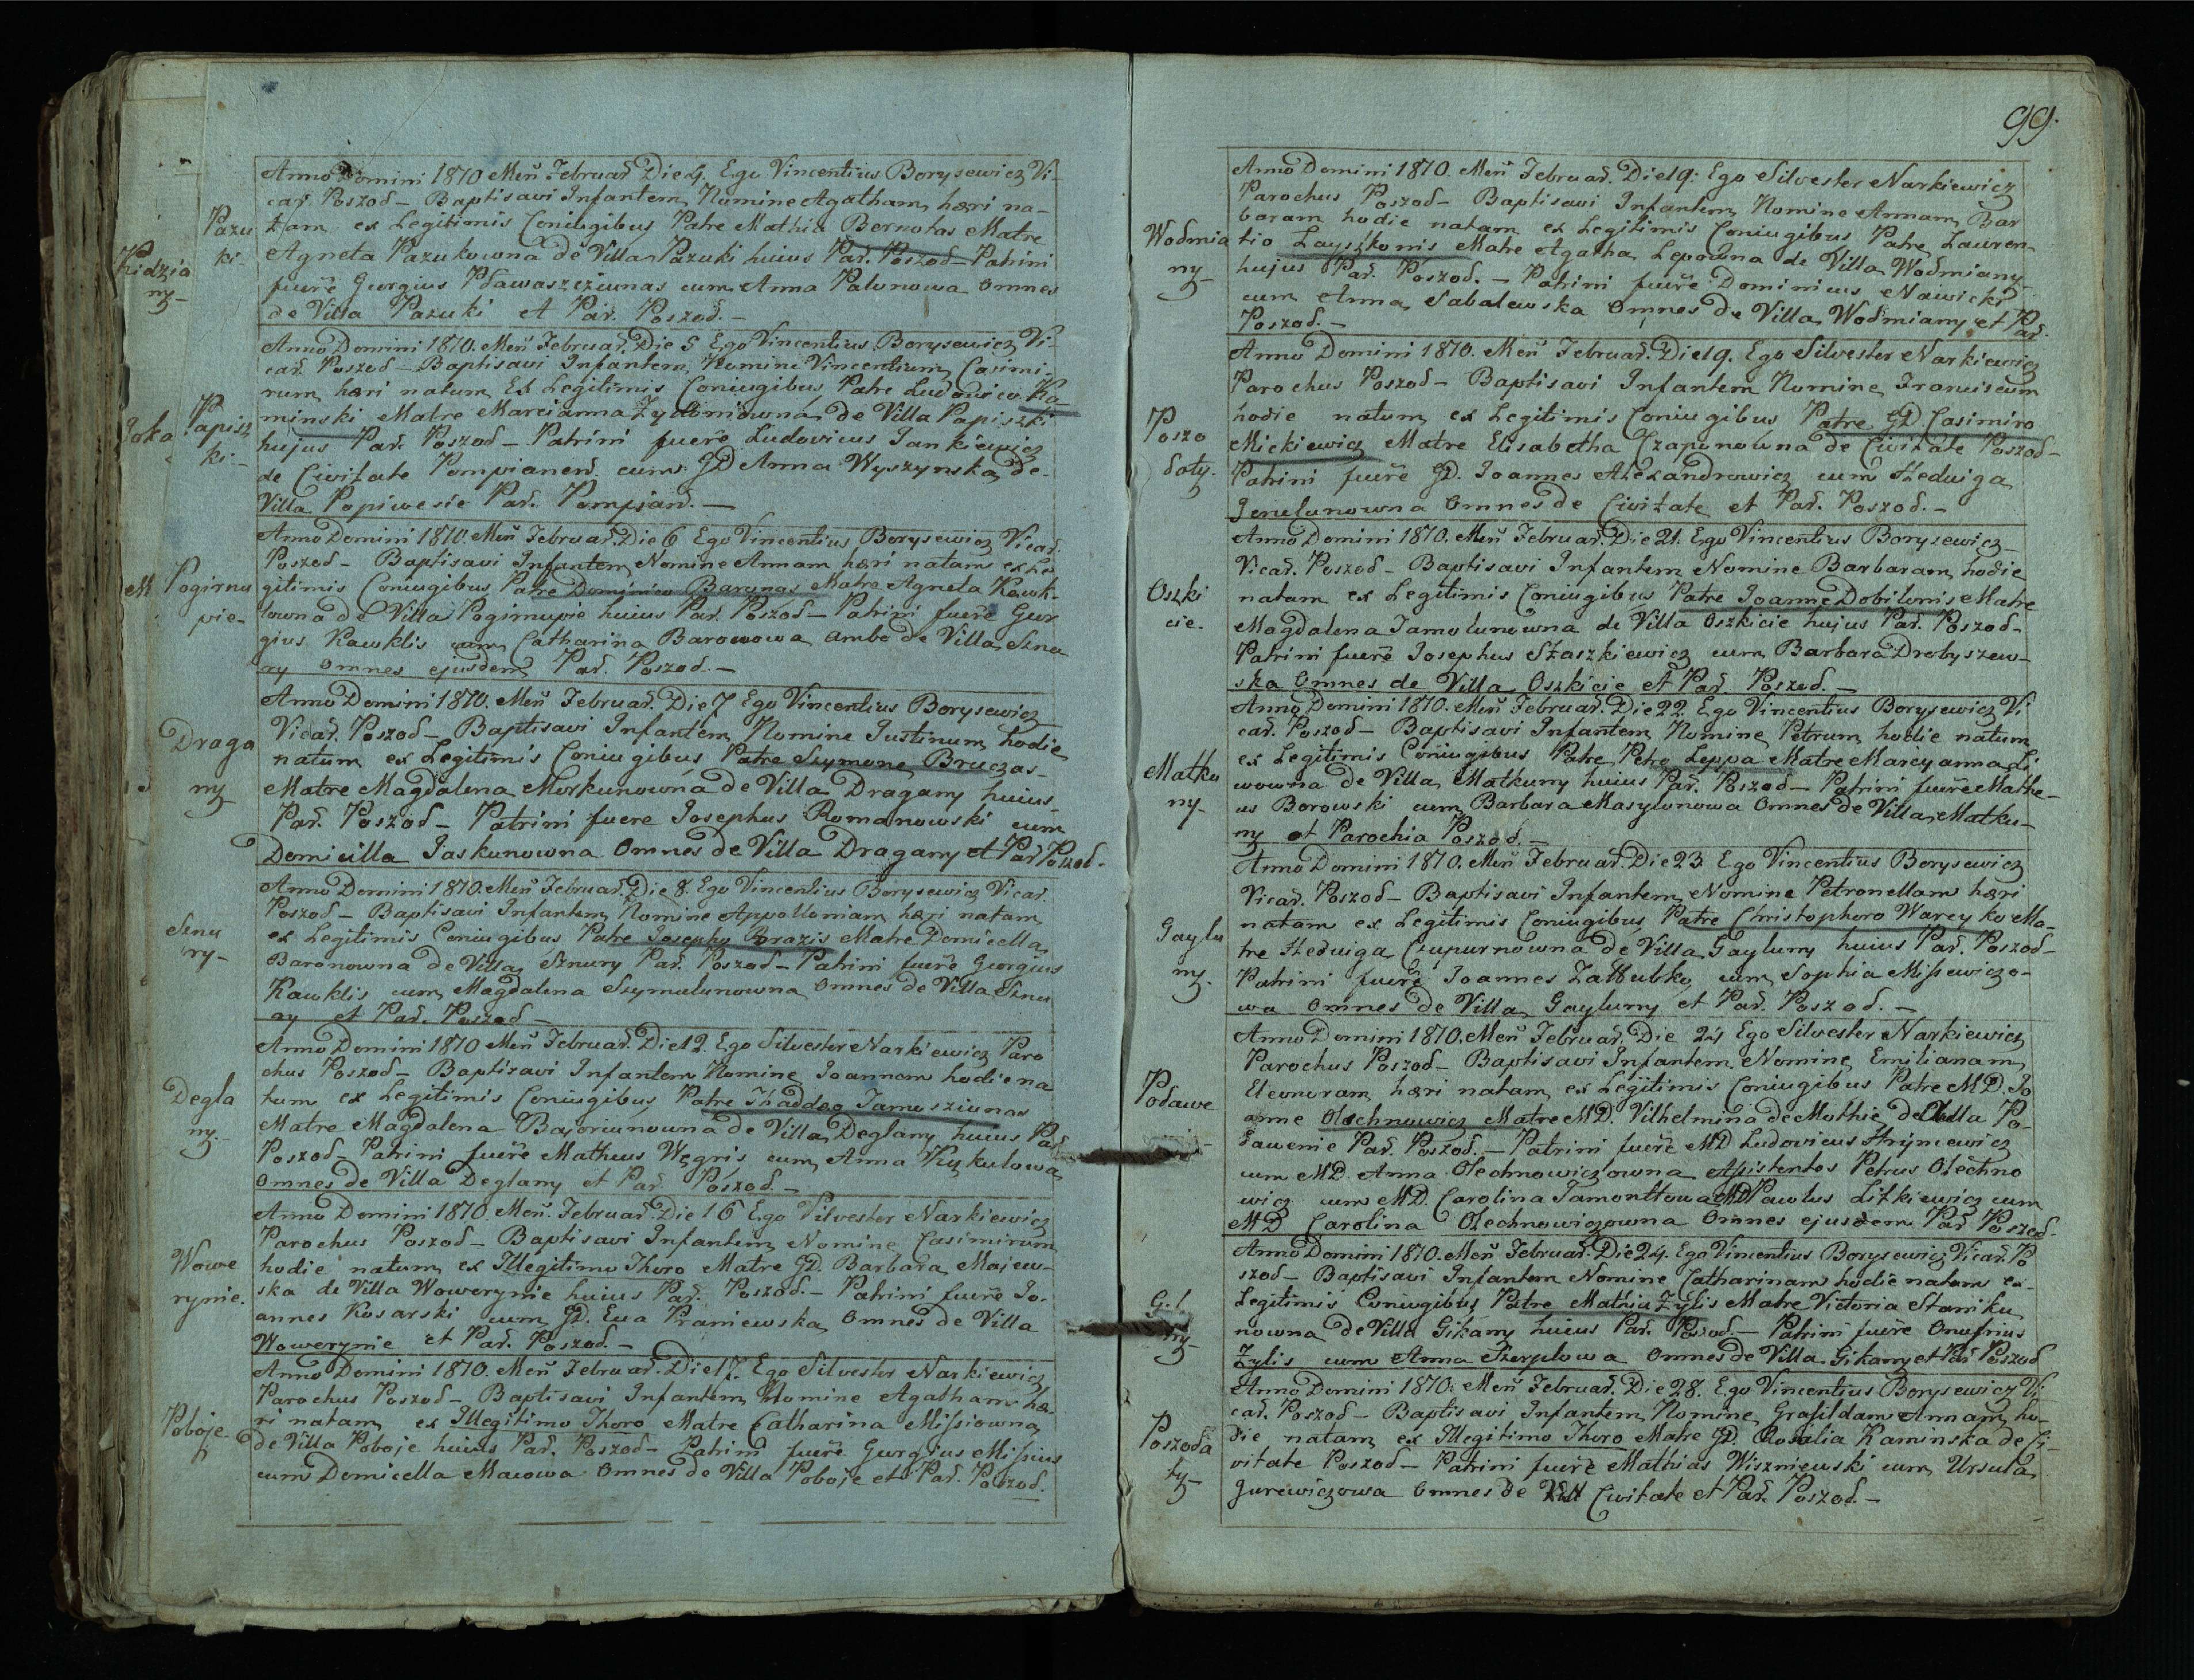 Pazu
ki.
Anno Domini 1810 Meń Februar̃ Die 4. Ego Vincentius Borysewicz Vi-
car̃ Poszod – Baptisavi Infantem Nomine Agatham hæri na-
tam ex Legitimis Coniugibus Patre Mathia Bernotas Matre
Agneta Pazukowna de Villa Pazuki huius Par̃. Poszod – Patrini
fuerẽ Georgius Pławaszciunas cum Anna Palunowa Omnes
de Villa Pazuki et Par̃. Poszod. –
Papisz
ki –
Anno Domini 1810. Meń Februar̃. Die 5 Ego Vincentius Borysewicz Vi-
car̃. Poszod – Baptisavi Infantem Nomine Vincentium Casimi-
rum hæri natum Ex Legitimis Coniugibus Patre Ludovico Ka-
minski Matre Marcianna de Villa Papiszki
hujus Par̃. Poszod – Patrini fuerẽ Ludovicus Jankiewicz
de Civitate Pompianens. cum GD Anna Wyszynska de
Villa Popiwesie Par̃. Pompian̄. –
Pogirnu
pie –
Anno Domini 1810. Meń Februar̃. Die 6 Ego Vincentius Borysewicz Vicar̃.
Poszod – Baptisavi Infantem Nomine Annam hæri natam ex Le
gitimis Coniugibus Patre Dominico Barunas Matre Agneta Kawk-
lowna de Villa Pogirnupie huius Par̃. Poszod – Patrini fuerẽ Geor
gius Kawklis cum Catharina Baronowa Ambo de Villa Sznu
ry Omnes ejusdem Par̃. Poszod. –
Draga
ny
Anno Domini 1810. Meń Februar̃. Die 7 Ego Vincentius Borysewicz
Vicar̃. Poszod – Baptisavi Infantem Nomine Justinum hodie
natum ex Legitimis Coniugibus Patre Szymone Bruczas –
Matre Magdalena Morkunowna de Villa Dragany huius
Par̃. Poszod – Patrini fuere Josephus Romanowski cum
Domicilla Jaskunowna Omnes de Villa Dragany et Par̃ Poszod.
Sznu
ry –
Anno Domini 1810. Meń Februar̃. Die 8. Ego Vincentius Borysewicz Vicar̃.
Poszod – Baptisavi Infantem Nomine Appolloniam hæri natam
ex Legitimis Coniugibus Patre Josepho Brazis Matre Domicella
Baronowna de Villa Sznury Par̃. Poszod – Patrini fuerẽ Georgius
Kawklis cum Magdalena Szymulunowna Omnes de Villa Sznu
ry et Par̃. Poszod –
Degla
ny –
Anno Domini 1810 Meń Februar̃. Die 12. Ego Silvester Narkiewicz Paro
chus Poszod – Baptisavi Infantem Nomine Joannem hodie na
tum ex Legitimis Coniugibus Patre Thaddæo Jamusziunas
Matre Magdalena Bajoriunowna de Villa Deglany huius Par̃
Poszod – Patrini fuerẽ Matheus Węgris cum Anna Kukulowa
Omnes de Villa Deglany et Par̃. Poszod. –
Wowe
rynie.
Anno Domini 1810. Meń. Februar̃. Die 16 Ego Silvester Narkiewicz
Parochus Poszod – Baptisavi Infantem Nomine Casimirum
hodie natum ex Illegitimo Thoro Matre GD. Barbara Majew-
ska de Villa Wowerynie huius Par̃. Poszod. – Patrini fuerẽ Jo-
annes Kosarski cum GD. Eva Praniewska Omnes de Villa
Wowerynie et Par̃. Poszod. –
Poboje
Anno Domini 1810. Meń Februar̃. Die 17. Ego Silvester Narkiewicz
Parochus Poszod – Baptisavi Infantem Nomine Agatham hæ-
ri natam ex Illegitimo Thoro Matre Catharina Missiowna
de Villa Poboje huius Par̃. Poszod – Patrini fuerẽ Georgius Missius
cum Domicella Macowa Omnes de Villa Poboje et Par̃. Poszod.
99.
Wodmia
ny –
Anno Domini 1810. Meń Februar̃. Die 19. Ego Silvester Narkiewicz
Parochus Poszod – Baptisavi Infantem Nomine Annam Bar
baram hodie natam ex Legitimis Coniugibus Patre Lauren
tio Layszkonis Matre Agatha Lepowna de Villa Wodmiany
hujus Par̃. Poszod. – Patrini fuerẽ Dominicus Nawicki
cum Anna Sabalewska Omnes de Villa Wodmiany et Par̃.
Poszod. –
Poszo
doły.
Anno Domini 1810. Meń Februar̃. Die 19. Ego Silvester Narkiewicz
Parochus Poszod – Baptisavi Infantem Nomine Franciscum
hodie natum ex Legitimis Coniugibus Patre GD Casimiro
Mickiewicz Matre Elisabetha Czapunowna de Civitate Poszod –
Patrini fuerẽ GD. Joannes Alexandrowicz cum Hedviga
Omnes de Civitate et Par̃. Poszod. –
Oszki
cie.
Anno Domini 1810. Meń Februar̃. Die 21. Ego Vincentius Borysewicz –
Vicar̃. Poszod – Baptisavi Infantem Nomine Barbaram hodie
natam ex Legitimis Coniugibus Patre Joanne Dobilonis Matre
Magdalena Jamolunowna de Villa Oszkicie hujus Par̃. Poszod –
Patrini fuerẽ Josephus Staszkiewicz cum Barbara Drobyszew-
ska Omnes de Villa Oszkicie et Par̃. Poszod. –
Matku
ny –
Anno Domini 1810. Meń Februar̃. Die 22. Ego Vincentius Borysewicz Vi
car̃. Poszod – Baptisavi Infantem Nomine Petrum hodie natum
ex Legitimis Coniugibus Patre Petro Leppa Matre Marcyanna Li
wowna de Villa Matkuny huius Par̃. Poszod – Patrini fuerẽ Mathe-
us Borowski cum Barbara Masylunowa Omnes de Villa Matku-
ny et Parochia Poszod. –
Gaylu
ny.
Anno Domini 1810. Meń Februar̃. Die 23 Ego Vincentius Borysewicz
Vicar̃. Poszod – Baptisavi Infantem Nomine Petronellam hæri
natam ex Legitimis Coniugibus Patre Christophoro Wareyko Ma-
tre Hedviga Czupurnowna de Villa Gayluny huius Par̃. Poszod –
Patrini fuerẽ Joannes cum Sophia Missewiczo-
wa Omnes de Villa Gayluny et Par̃. Poszod. –
Podawe
Anno Domini 1810. Meń Februar̃. Die 24 Ego Silvester Narkiewicz
Parochus Poszod – Baptisavi Infantem Nomine Emilianam
Eleonoram hæri natam ex Legitimis Coniugibus Patre MD. Jo
anne Olechnowicz Matre MD. Vilhelmina de Mothie de Villa Po-
dawenie Par̃. Poszod. – Patrini fuerẽ MD Ludovicus Hryncewicz
cum MD. Anna Olechnowiczowna Assistentes Petrus Olechno
wicz cum MD. Carolina Jamonttowa MD Pawlus Litkiewicz cum
MD Carolina Olechnowiczowna Omnes ejusdem Par̃ Poszod.
ny –
Anno Domini 1810. Meń Februar̃. Die 24. Ego Vincentius Borysewicz Vicar̃. Po
szod – Baptisavi Infantem Nomine Catharinam hodie natam ex
Legitimis Coniugibus Patre Mathia Żylis Matre Victoria Staniku
nowna de Villa Gikany huius Par̃. Poszod. – Patrini fuerẽ Onufrius
Żylis cum Anna Omnes de Villa Gikany et Par̃ Poszod
Poszoda
ły –
Anno Domini 1810. Meń Februar̃. Die 28. Ego Vincentius Borysewicz Vi
car̃. Poszod – Baptisavi Infantem Nomine Grasildam Annam ho-
die natam ex Illegitimo Thoro Matre GD. Rosalia Kaminska de Ci-
vitate Poszod – Patrini fuerẽ Mathias Wiszniewski cum Ursula
Gurewiczowa Omnes de Civitate et Par̃. Poszod. –